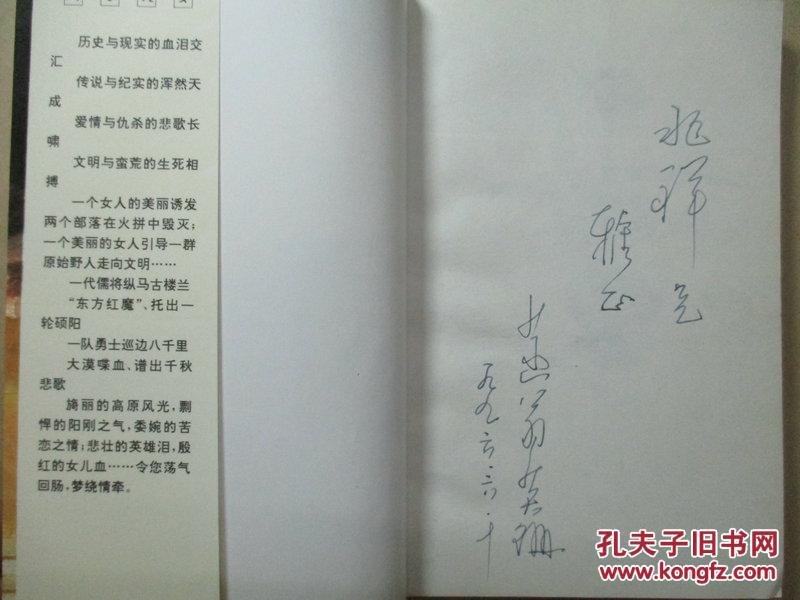 历史与现实的血泪交
汇
传说与纪实的浑然天
成
爱情与仇杀的悲歌长
啸
文明与蛮荒的生死相
搏
一个女人的美丽诱发
两个部落在火拼中毁灭；
一个美丽的女人引导一群
原始野人走向文明……
一代儒将纵马古楼兰
“东方红魔”、托出一
轮硕阳
一队勇士巡边八千里
大漠喋血、谱出千秋
悲歌
旖丽的高原风光，剽
悍的阳刚之气，委婉的苦
恋之情；悲壮的英雄泪，殷
红的女儿血……令您荡气
回肠，梦绕情牵。
兆祥兄
雅正
英珊
孔夫子旧书网
www.kongfz.com